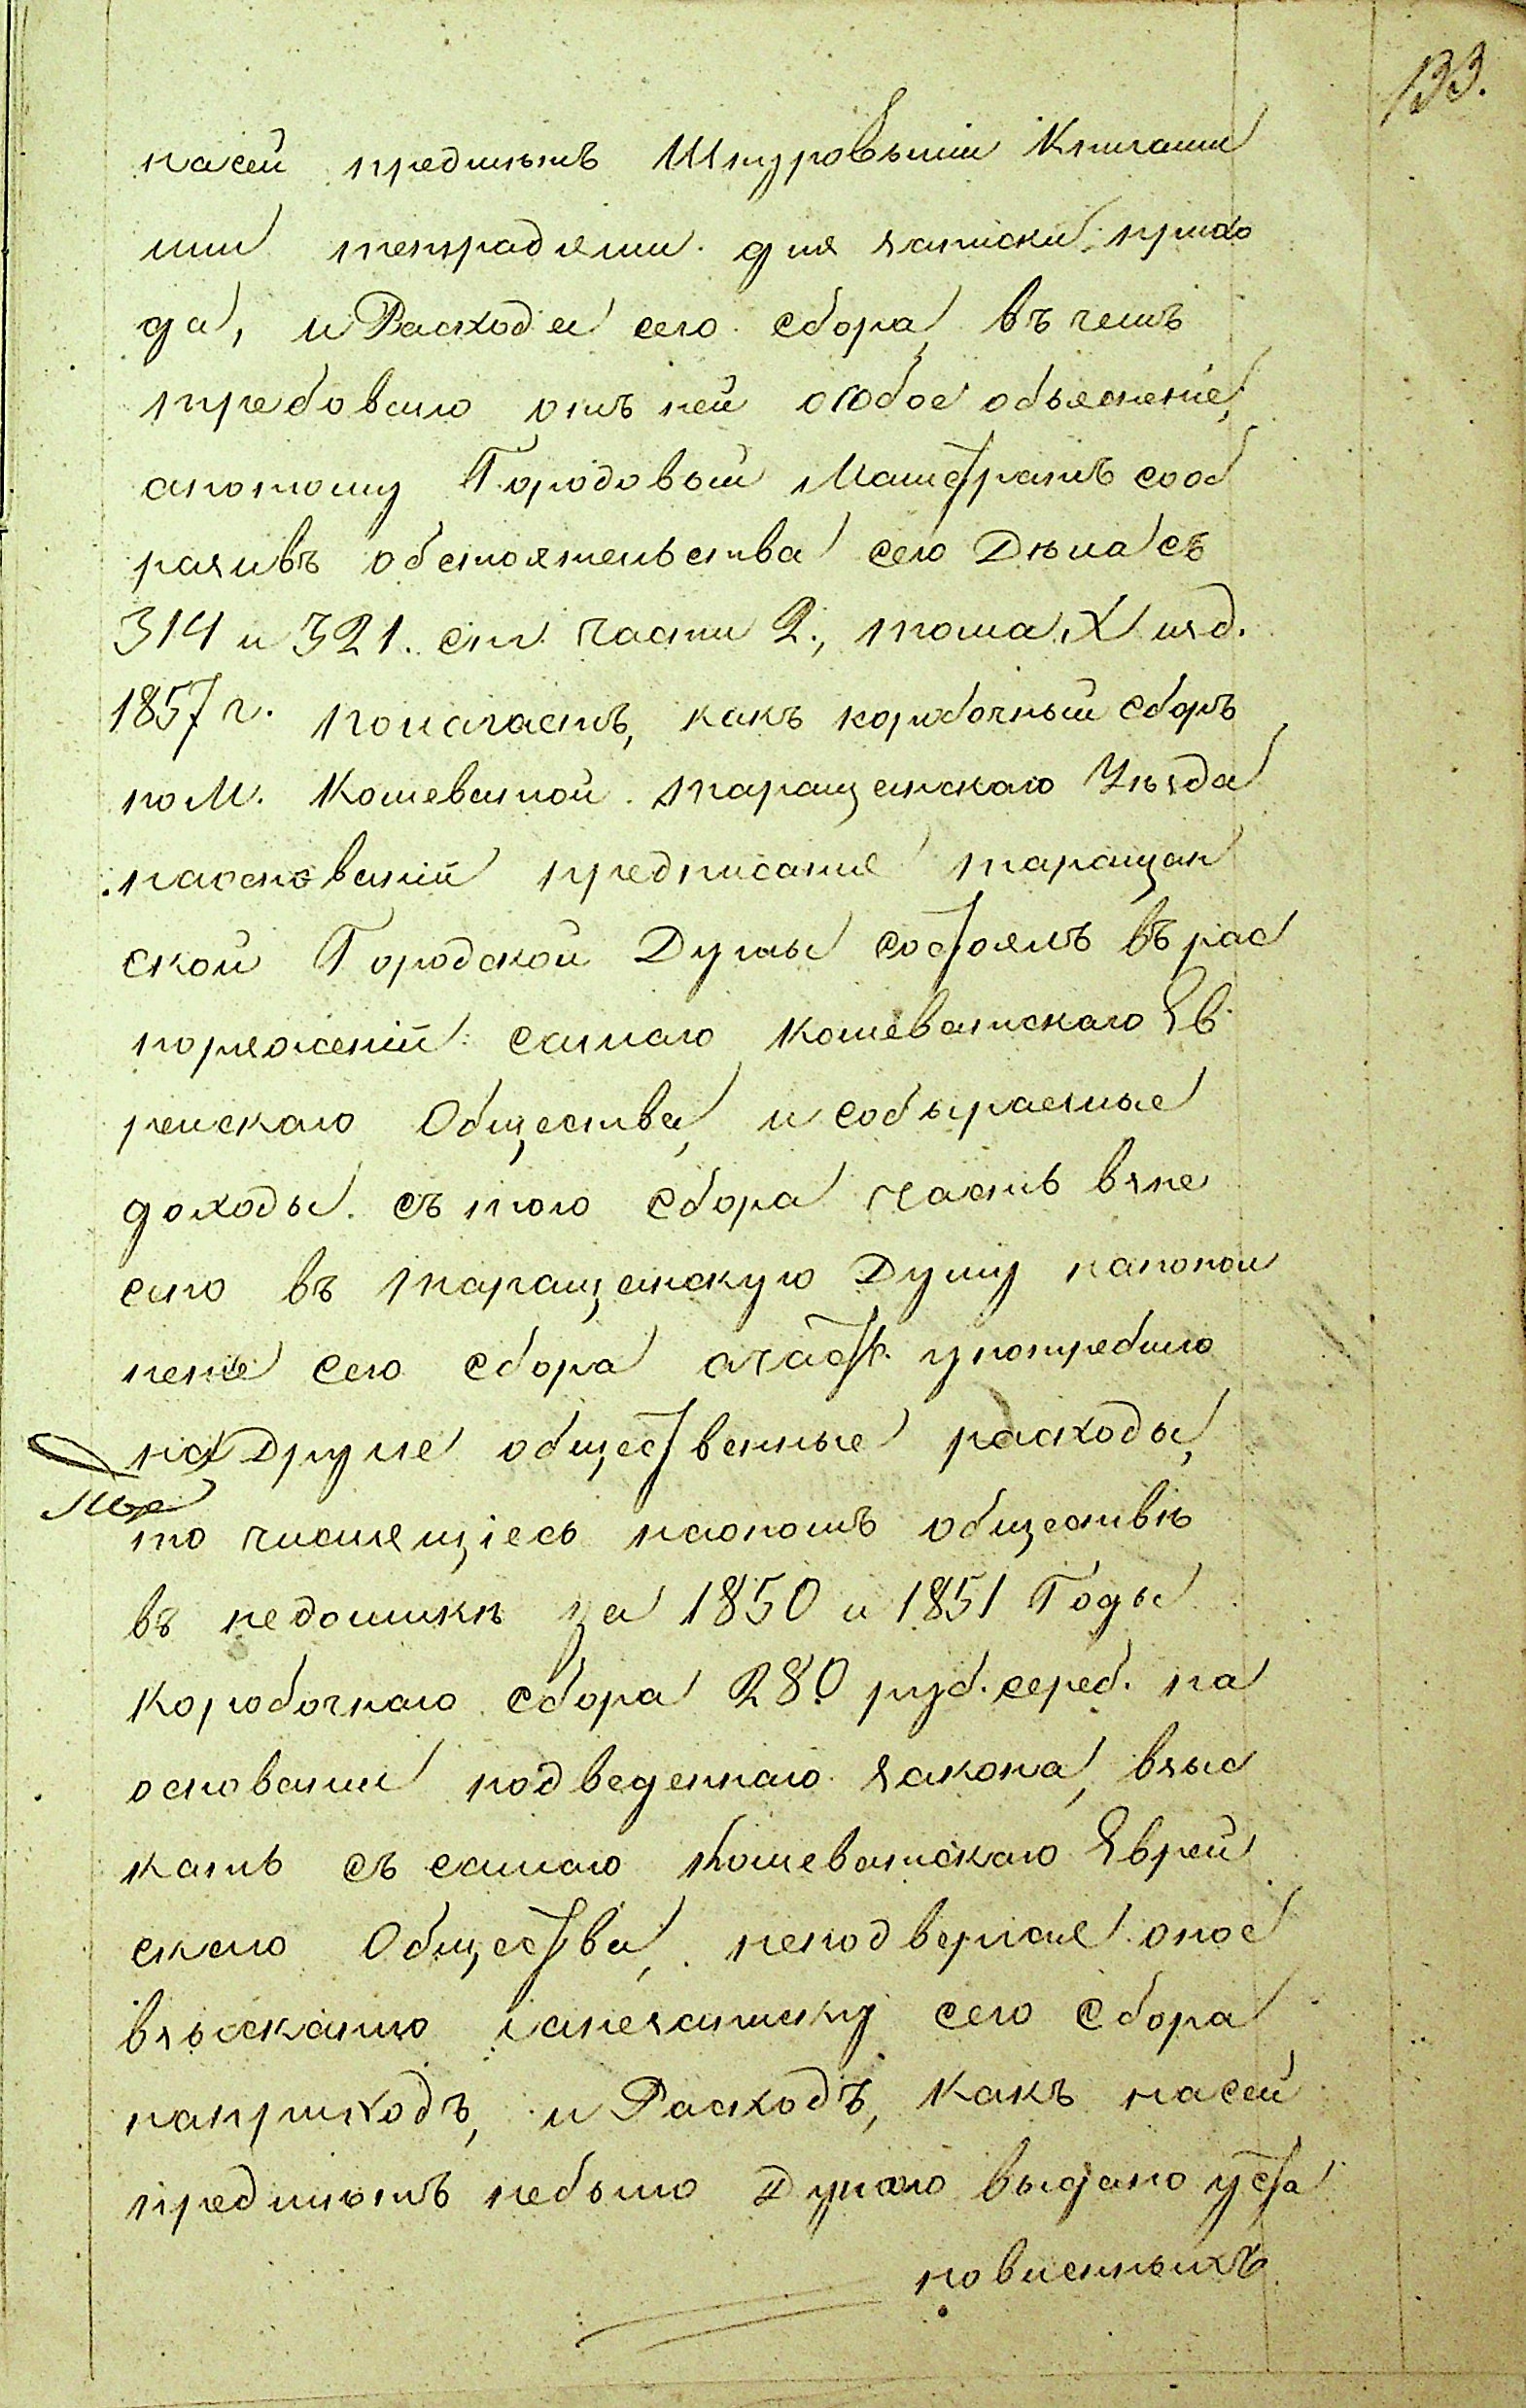 133.
насей предметъ Шнуровыми Книгами
или тетрадями для записки прихо
да, и Расхода сего сбора, въ чемъ
требовало отъ ней особое объяснение,
апотому Городовый Магистратъ сооб
разивъ обстоятельства сего Дѣла съ
314 и 321. ст. части 2., тома X изд.
1857 г. полагаетъ, какъ коробочный сборъ
по М. Кошеватой Таращанскаго Уѣзда
наоснованіи предписания таращан
ской Городской Думы состоялъ въ рас
поряженіи самаго Кошеватскаго Ев
рейскаго Общества, и собыраемые
доходы съ того сбора часть взне
сено въ Таращанскую Думу напопол
нение сего сбора ачасть употребило
на Другие общественные расходы,
то числящіесь наономъ обществѣ
въ недоимкѣ за 1850 и 1851 Годы
коробочнаго сбора 280 руб. сереб. на
основании подведеннаго закона, взыс
кать съ самаго Кошеватскаго Еврей
скаго Общества, неподвергая оное
взысканию занезаписку сего сбора
наприходъ, и Расходъ, какъ насей
предметъ небыло Думою выдано уста
новленныхъ